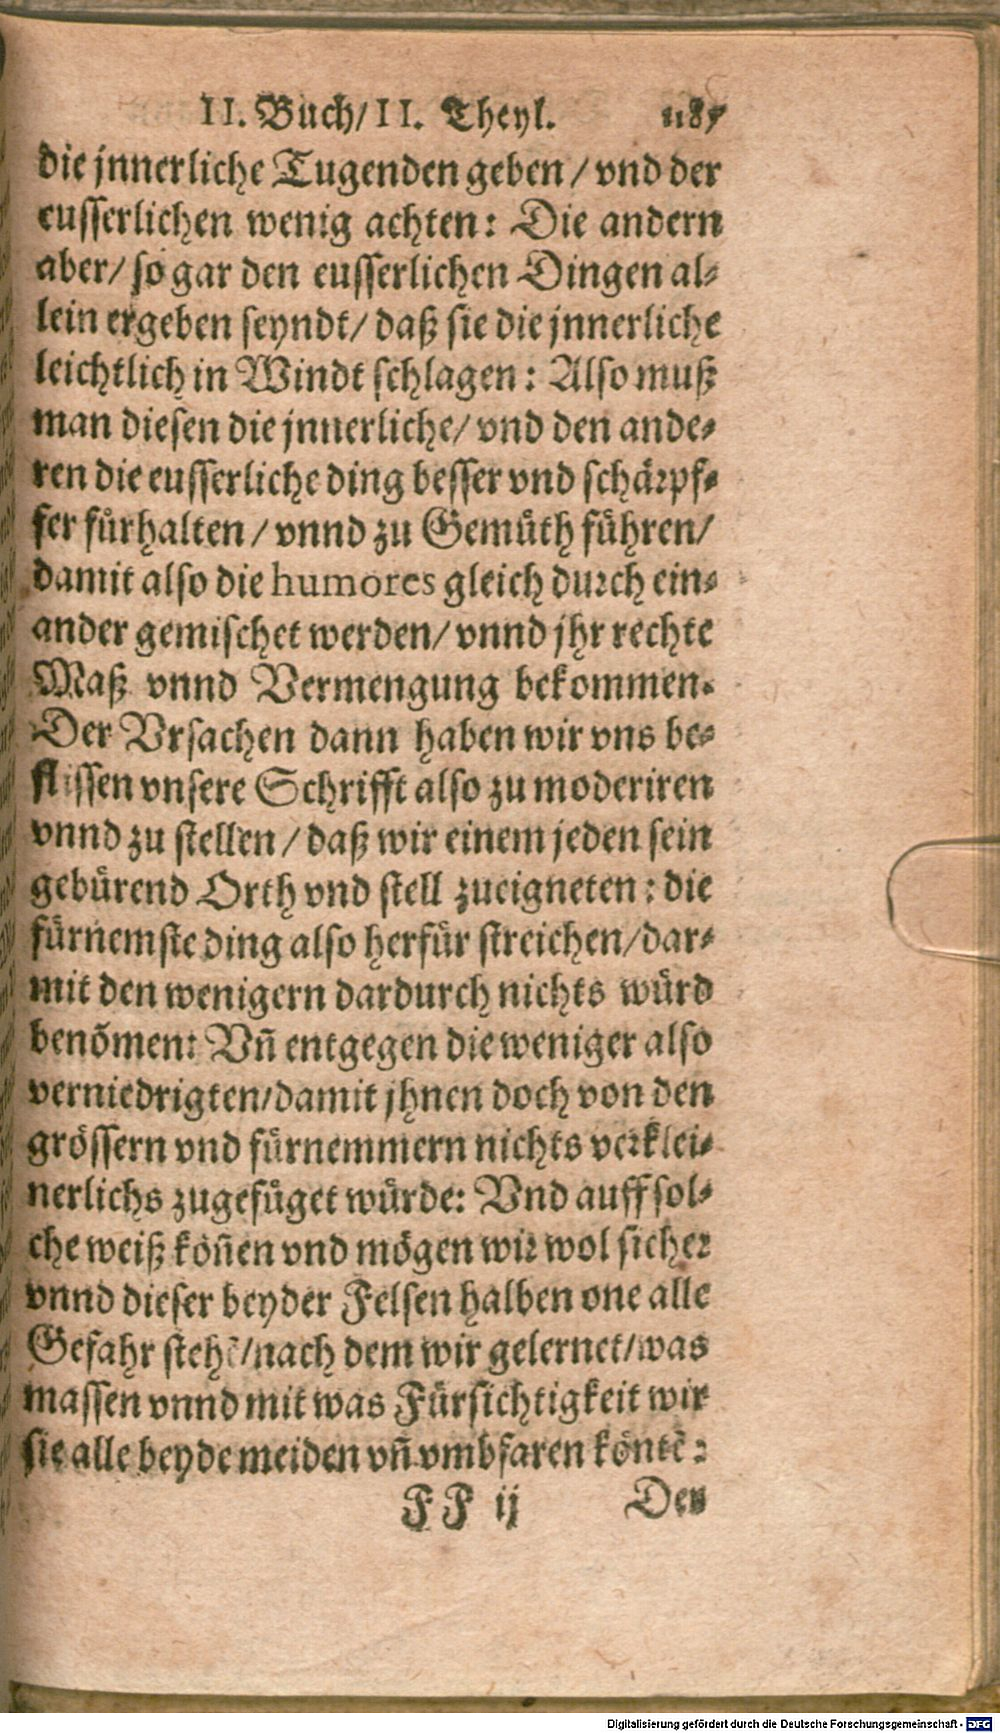 II. Buch/ II. Theyl. 1187
die jnnerliche Tugenden geben / vnd der
eusserlichen wenig achten: Die andern
aber/ so gar den eusserlichen Dingen al-
lein ergeben seyndt/ daß sie die jnnerliche
leichtlich in Windt schlagen: Also muß
man diesen die jnnerliche/ vnd den ande-
ren die eusserliche ding besser vnd schärpf-
fer fürhalten / vnnd zu Gemüth führen/
damit also die humores gleich durch ein-
ander gemischet werden/ vnnd jhr rechte
Maß vnnd Vermengung bekommen.
Der Vrsachen dann haben wir vns be-
flissen vnsere Schrifft also zu moderiren
vnnd zu stellen / daß wir einem jeden sein
gebürend Orth vnd stell zueigneten: die
fürnemste ding also herfür streichen/dar-
mit den wenigern dardurch nichts würd
benõmen: Vñ entgegen die weniger also
verniedrigten/damit jhnen doch von den
grössern vnd fürnemmern nichts verklei-
nerlichs zugefüget würde: Vnd auff sol-
che weiß köñen vnd mögen wir wol sicher
vnnd dieser beyder Felsen halben one alle
Gefahr stehẽ/nach dem wir gelernet/was
massen vnnd mit was Fürsichtigkeit wir
sie alle beyde meiden vñ vmbfaren köntẽ:
FF ij Den
Digitalisierung gefördert durch die Deutsche Forschungsgemeinschaft - DFG